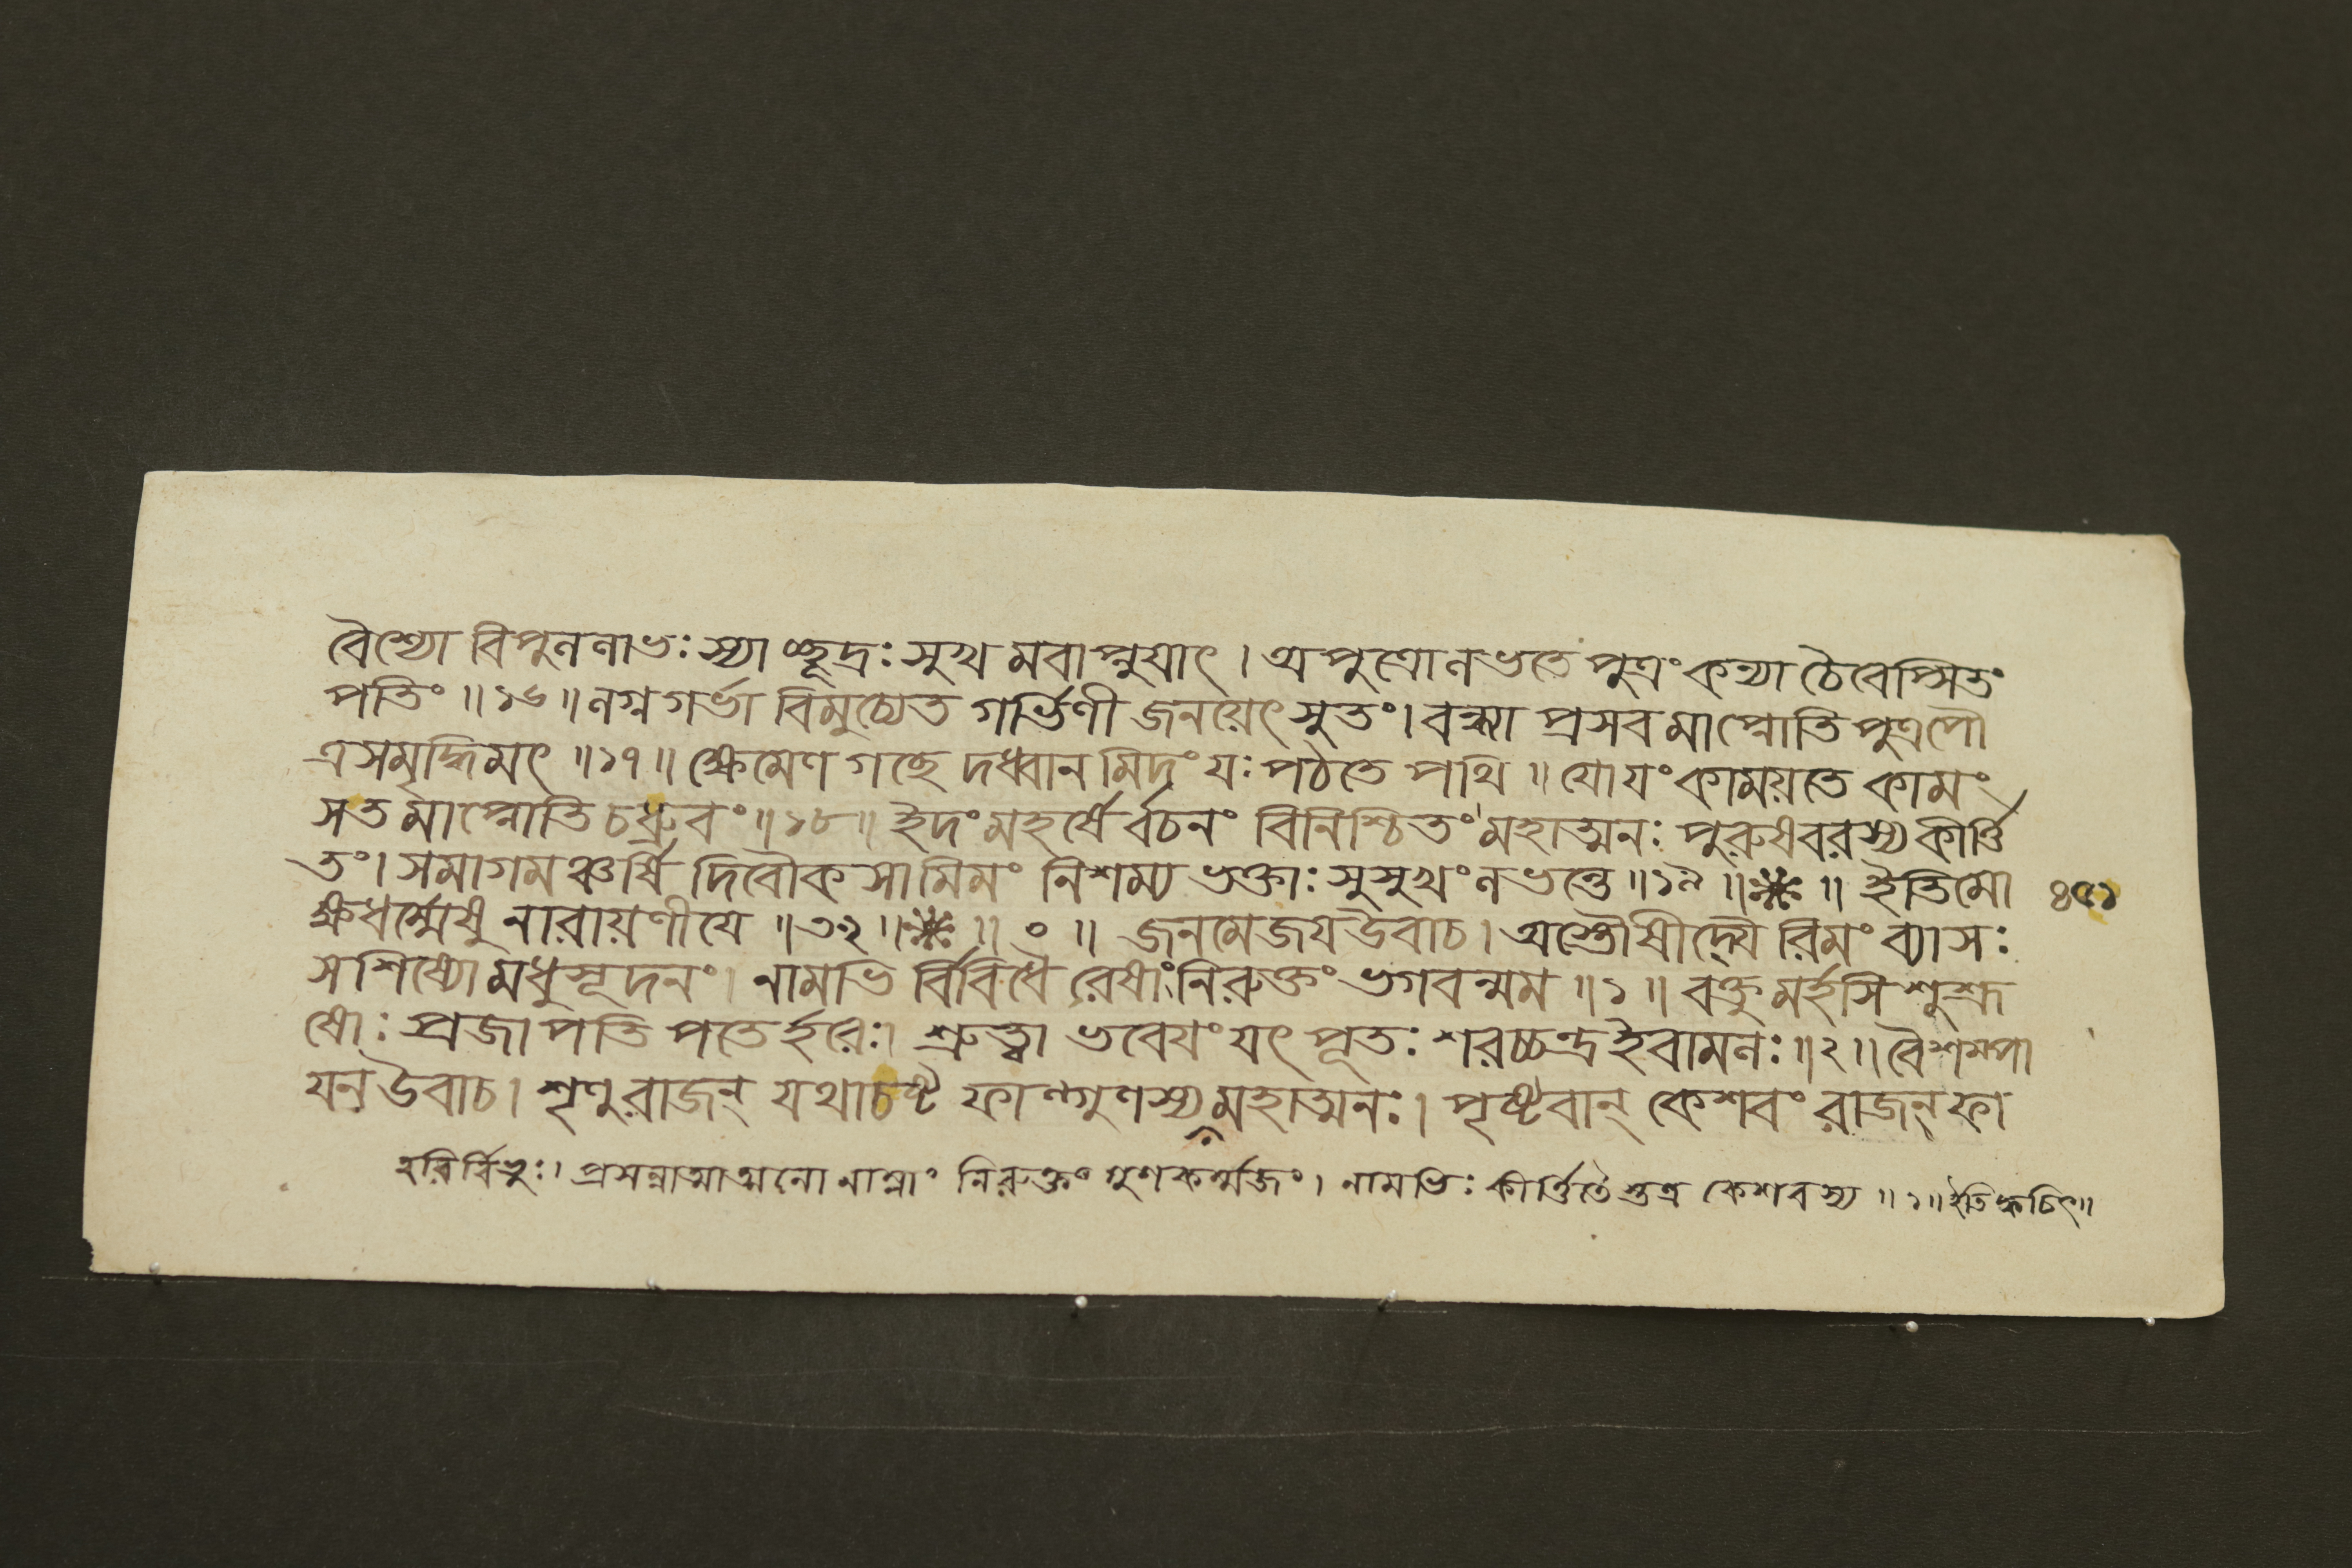 বৈশ্যো বিপুললাভঃ স্যাচ্ছূদ্রঃ সুখমবাপ্নুয়াৎ । অপুত্রো লভতে পুত্রং কন্যা চৈবেপ্সিতং
পতিং ॥ ১৬ ॥ লগ্নগর্ভা বিমুচ্যেত গর্ভিণী জনয়েৎ সুতং । বন্ধ্যা প্রসবমাপ্নোতি পুত্রপৌ
ত্রসমৃদ্ধিমৎ ॥ ১৭ ॥ ক্ষেমেণ গচ্ছেদধ্বানমিদং যঃ পঠতে পথি ॥ যো যং কাময়তে কামং
স তমাপ্নোতি চ ধ্রুবং ॥ ১৮ ॥ ইদং মহর্ষের্বচনং বিনিশ্চিতং মহাত্মনঃ পুরুষবরস্য কীর্ত্তি
তং । সমাগমঞ্চর্ষি দিবৌকসামিমং নিশম্য ভক্তাঃ সুসুখং লভন্তে ॥ ১৯ ॥ ❋ ॥ ইতি মো ৪৫১
ক্ষধর্ম্মেষু নারায়ণীযে ॥ ৩২ ॥ ❋ ॥ ० ॥ জনমেজয উবাচ । অস্তৌষীদ্যৈরিমং ব্যাসঃ
সশিষ্যো মধুসূদনং । নামভির্বিবিধৈরেষাং নিরুক্তং ভগবন্মম ॥ ১ ॥ বক্তুমর্হসি শুশ্রূ
ষোঃ প্রজাপতিপতের্হরেঃ । শ্রুত্বা ভবেযং যৎ পূতঃ শরচ্চন্দ্র ইবামলঃ ॥ ২ ॥ বৈশম্পা
যন উবাচ । শৃণু রাজন্ যথাচষ্ট ফাল্গুণস্য মহাত্মনঃ । পৃষ্টবান্ কেশবং রাজন্ ফা
হরির্বিভুঃ । প্রসন্নাত্মাত্মনো নাম্নাং নিরুক্তং গুণকর্ম্মজং । নামভিঃ কীর্ত্তিতৈস্তত্র কেশবস্য ॥ ১ ॥ ইতি ক্বচিৎ ॥